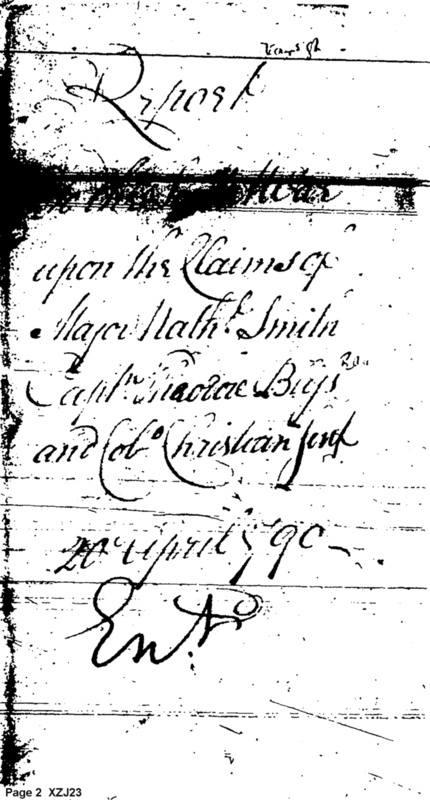 Report
War
upon the Claims of
Major Nath.l Smith
Capt.n
and Col.o Christian Senf
20th April 1790
Ent.d
Page 2 XZJ23